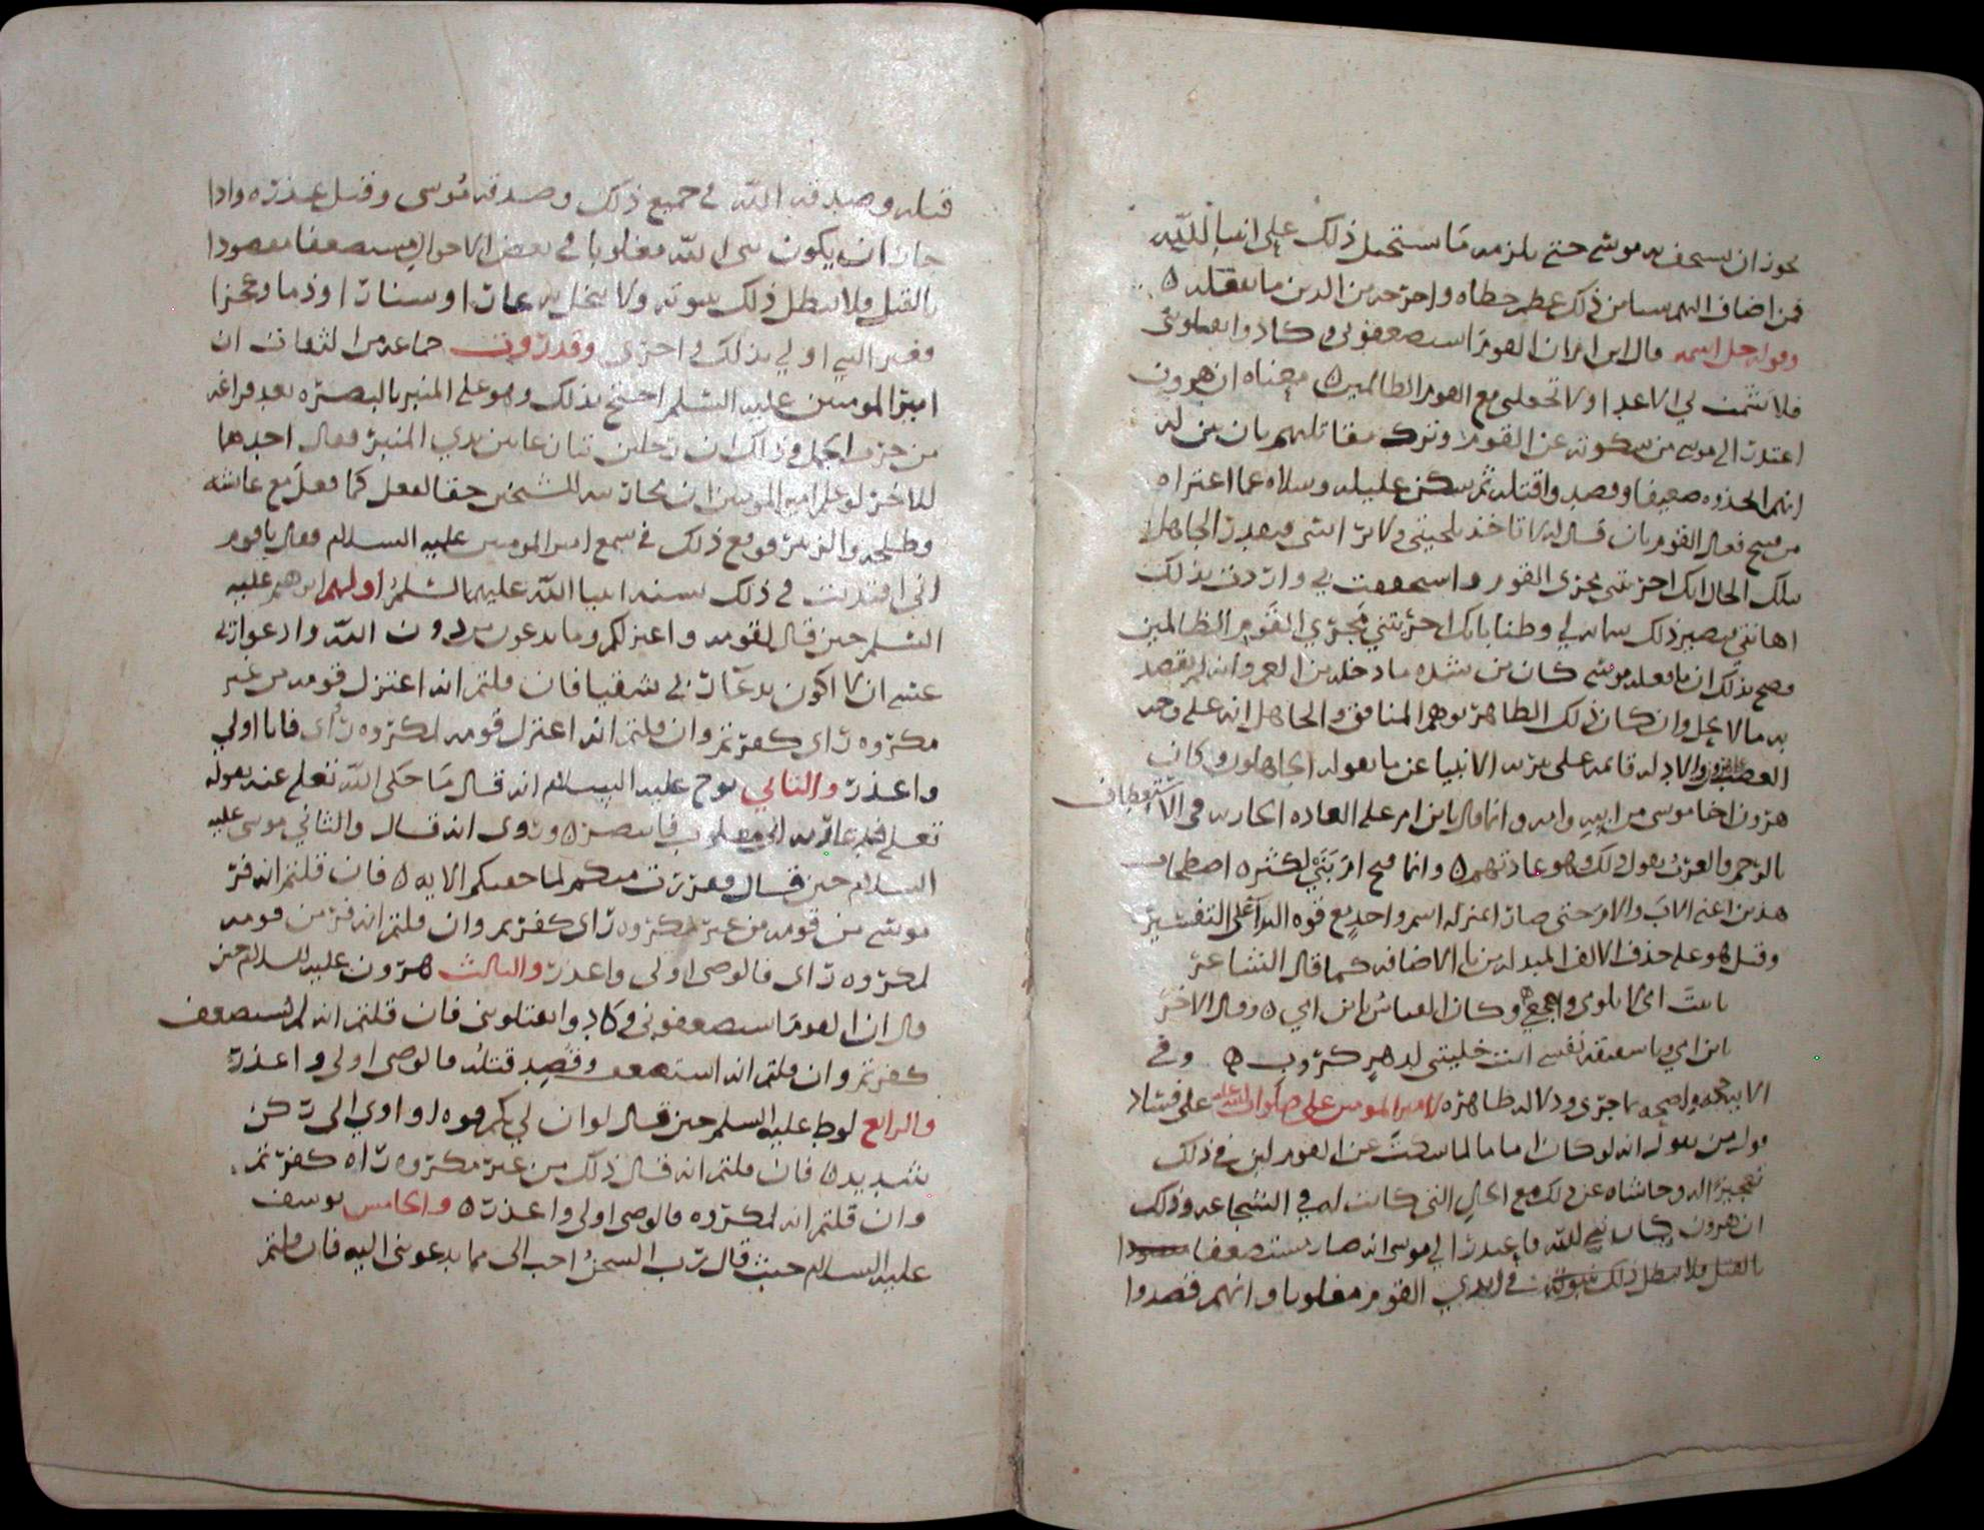 يجوز ان يستخف به موسى حتى يلزمه ما يستحيل ذلك على انبيا الله
فمن اضاف اليهم شيا من ذلك عظم خطاه واخرجه من الدين ما يعقله ه
وقوله جل اسمه قال ابن ام ان القوم استضعفوني وكادوا يقتلونني
فلا تشمت بي الاعدا ولا تجعلني مع القوم الظالمين ه معناه ان هرون
اعتذر الى موسى من سكوته عن القوم وترك مقاتلتهم بان بين له
انهم اتخذوه ضعيفا وقصدوا قتله ثم سكن غليله وسلاه عما اعتراه
من قبيح فعال القوم بان قال له لا تاخذ بلحيتي ولا براسي فيعتقد الجاهل
بتلك الحال انك اجريتني مجرى القوم واستخففت بي واردت بذلك
اهانتي فيصير ذلك شماته لي وظنا بانك اجريتني مجري القوم الظالمين
فصح بذلك ان ما فعله موسى كان من شده ما دخله من الغم وانه لم يقصد
به ما لا يحل وان كان ذلك الظاهر يوهم المنافق والجاهل انه على وجه
الغضب والادله قائمه على تنزيه الانبيا عن ما يقوله الجاهلون وكان
هرون اخا موسى من ابيه وامه وانما قال ابن ام على العاده الجاريه في الاستعطاف
بالرحم والعرب تقول ذلك وهو عادتهم ه وانما فتح ام بنيه لكثره اصطحاب
هذين اعني الاب والام حتى صار بمنزله اسم واحد مع قوه الندا على التغيير
وقيل هو على حذف الالف المبدله من يا الاضافه كما قال الشاعر
يا بنت عمي لا تلومي واهجعي وكان القياس يا بن امي ه وقال الاخر
يا بن امي ويا شقيق نفسي انت خليتني لدهر كروب ه وفي
الايه حجه واضحه بما جرى ودلاله ظاهره لامير المومنين على صلوات الله عليه على فساد
قول من يقول انه لو كان اماما لما سكت عن القوم لان في ذلك
تعجيزا له وحاشاه عن ذلك مع الحال التي كانت له في الشجاعه وذلك
ان هرون كان نبي لله فاعتذر الي موسى انه صار مستضعفا مقصودا
بالقتل ولا يبطل ذلك نبوته في ايدي القوم مغلوبا وانهم قصدوا
قتله وصدقه الله في جميع ذلك وصدقه موسى وقبل عذره واذا
جاز ان يكون نبي الله مغلوبا في بعض الاحوال مستضعفا مقصودا
بالقتل ولا يبطل ذلك نبوته ولا يدخل به عارا وشنارا وذما وعجزا
فغير النبي اولي بذلك واحرى وقد روت جماعه من الثقات ان
امير المومنين عليه السلم احتج بذلك وهو على المنبر بالبصره بعد فراغه
من حرب الجمل وذلك ان رجلين تنازعا بين يدي المنبر فقال احدهما
للاخر لو علم امير المومنين ان محاربه الشيخين حقا لفعل كما فعل مع عائشه
وطلحه والزبير فوقع ذلك في سمع امير المومنين عليه السلام فقال يا قوم
اني اقتديت في ذلك بسنه انبيا الله عليهم السلم اولهم ابرهيم عليه
السلم حين قال لقومه واعتزلكم وما تدعون من دون الله وادعوا ربي
عسى ان لا اكون بدعا ربي شقيا فان قلتم انه اعتزل قومه من غير
مكروه راى كفرتم وان قلتم انه اعتزل قومه لمكروه راى فانا اولي
واعذر والثاني نوح عليه السلام انه قال ما حكى الله تعلى عنه بقوله
تعلى فدعا ربه اني مغلوب فانتصر ه وروى انه قال والثاني موسى عليه
السلام حين قال ففررت منكم لما خفتكم الايه ه فان قلتم انه فر
موسى من قومه من غير مكروه راى كفرتم وان قلتم انه فر من قومه
لمكروه راى فالوصي اولى واعذر والثالث هرون عليه السلام حين
قال ان القوم استضعفوني وكادوا يقتلونني فان قلتم انه لم يستضعف
كفرتم وان قلتم انه استضعف وقصد قتله فالوصي اولى واعذر
والرابع لوط عليه السلم حين قال لو ان لي بكم قوه او اوي الى ركن
شديد ه فان قلتم انه قال ذلك من غير مكروه راه كفرتم
وان قلتم انه لمكروه فالوصي اولى واعذر ه والخامس يوسف
عليه السلام حيث قال رب السجن احب الى مما يدعونني اليه فان قلتم